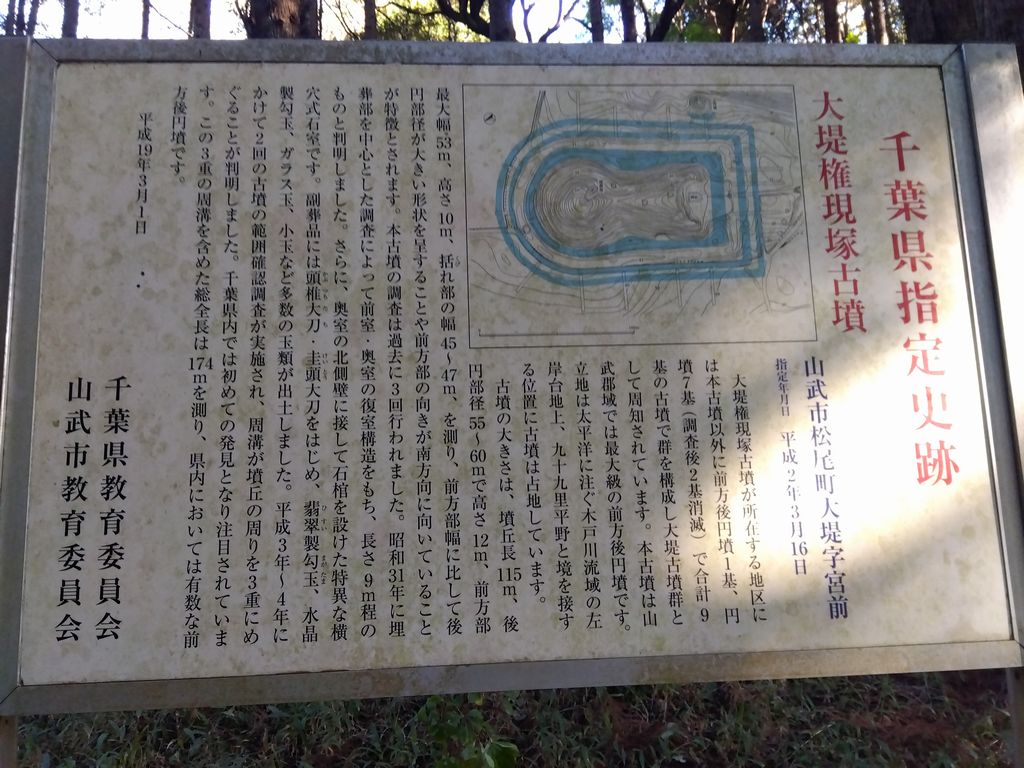 千葉県指定史跡
大堤権現塚古墳
山武市松尾町大堤字宮前
指定年月日　平成2年3月16日
大堤権現塚古墳が所在する地区に
は本古墳以外に前方後円墳1基、円
墳7基(調査後2基消滅)で合計9
基の古墳で群を構成し大堤古墳群と
して周知されています。本古墳は山
武郡域では最大級の前方後円墳です。
立地は太平洋に注ぐ木戸川流域の左
岸台地上、九十九里平野と境を接す
る位置に古墳は占地しています。
古墳の大きさは、墳丘長115m、後
円部径55～60mで高さ12m、前方部
最大幅53m、高さ10m、括れ部の幅45～47m、を測り、前方部幅に比して後
円部径が大きい形状を呈することや前方部の向きが南方向に向いていること
が特徴とされます。本古墳の調査は過去に3回行われました。昭和31年に埋
葬部を中心とした調査によって前室・奥室の復室構造をもち、長さ9m程の
ものと判明しました。さらに、奥室の北側壁に接して石棺を設けた特異な横
穴式石室です。副葬品には頭椎大刀・圭頭大刀をはじめ、翡翠製勾玉、水晶
製勾玉、ガラス玉、小玉など多数の玉類が出土しました。平成3年～4年に
かけて2回の古墳の範囲確認調査が実施され、周溝が墳丘の周りを3重にめ
ぐることが判明しました。千葉県内では初めての発見となり注目されていま
す。この3重の周溝を含めた総全長は174mを測り、県内においては有数な前
方後円墳です。
平成19年3月1日
千葉県教育委員会
山武市教育委員会